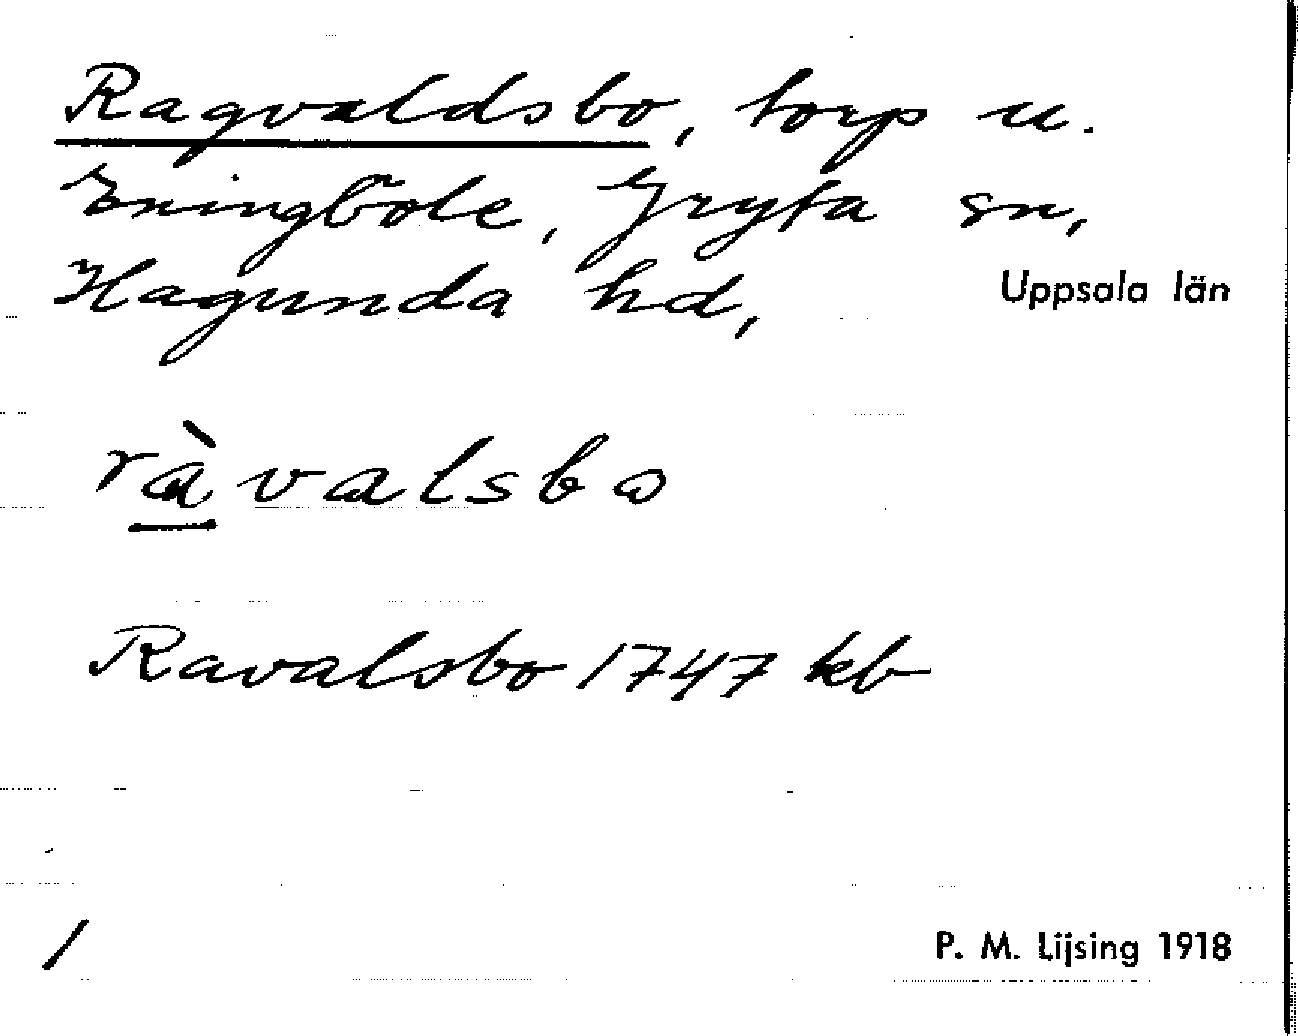 Ragvaldsbo, torp u.
Eningböle, Gryta sn,
Hagunda hd, Uppsala län
ràvalsbo
Ravalsbo 1747 kb
/ P. M. Lijsing 1918